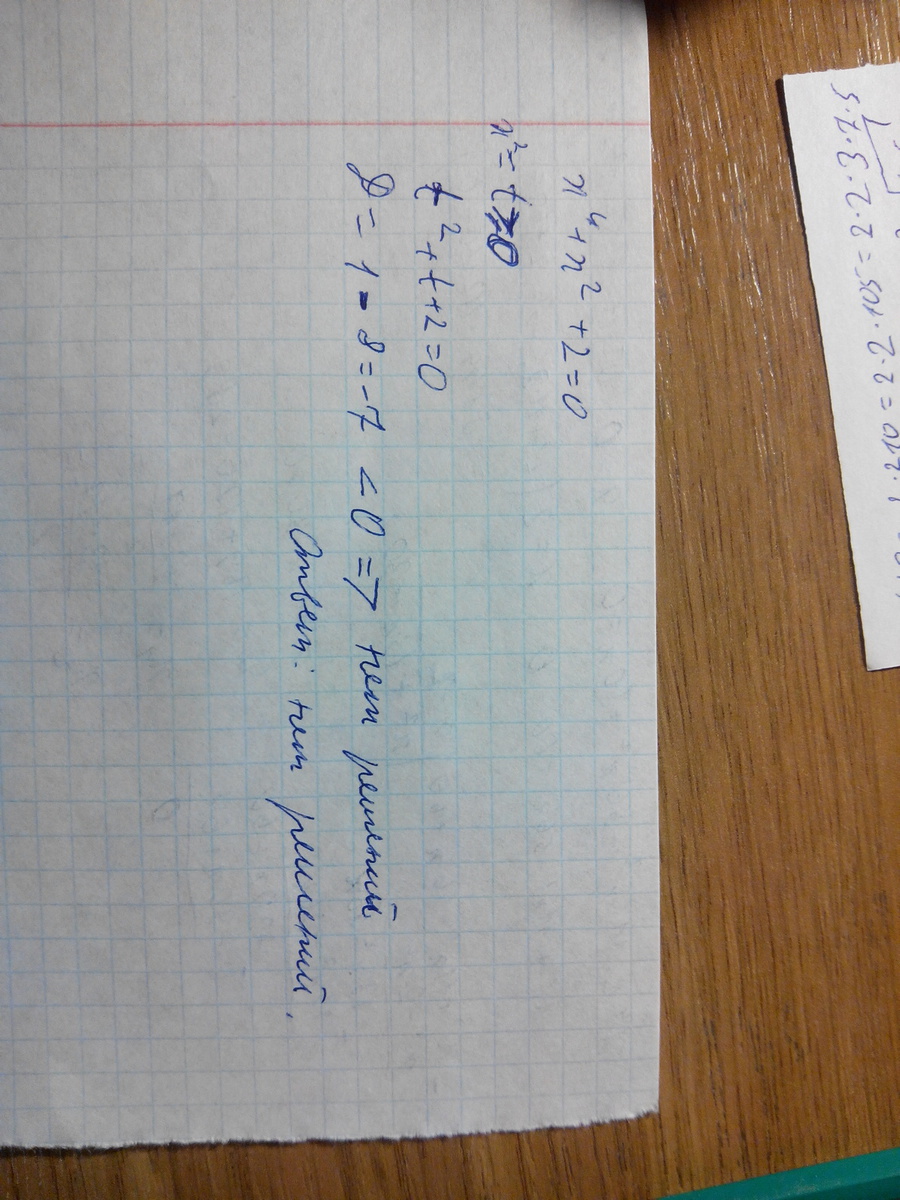 x⁴ + x² + 2 = 0
x² = t ⩾ 0
t² + t + 2 = 0
D = 1 - 8 = -7 < 0 => нет решений
Ответ: нет решений.
1·210 = 2·2·105 = 2·2·3·7·5